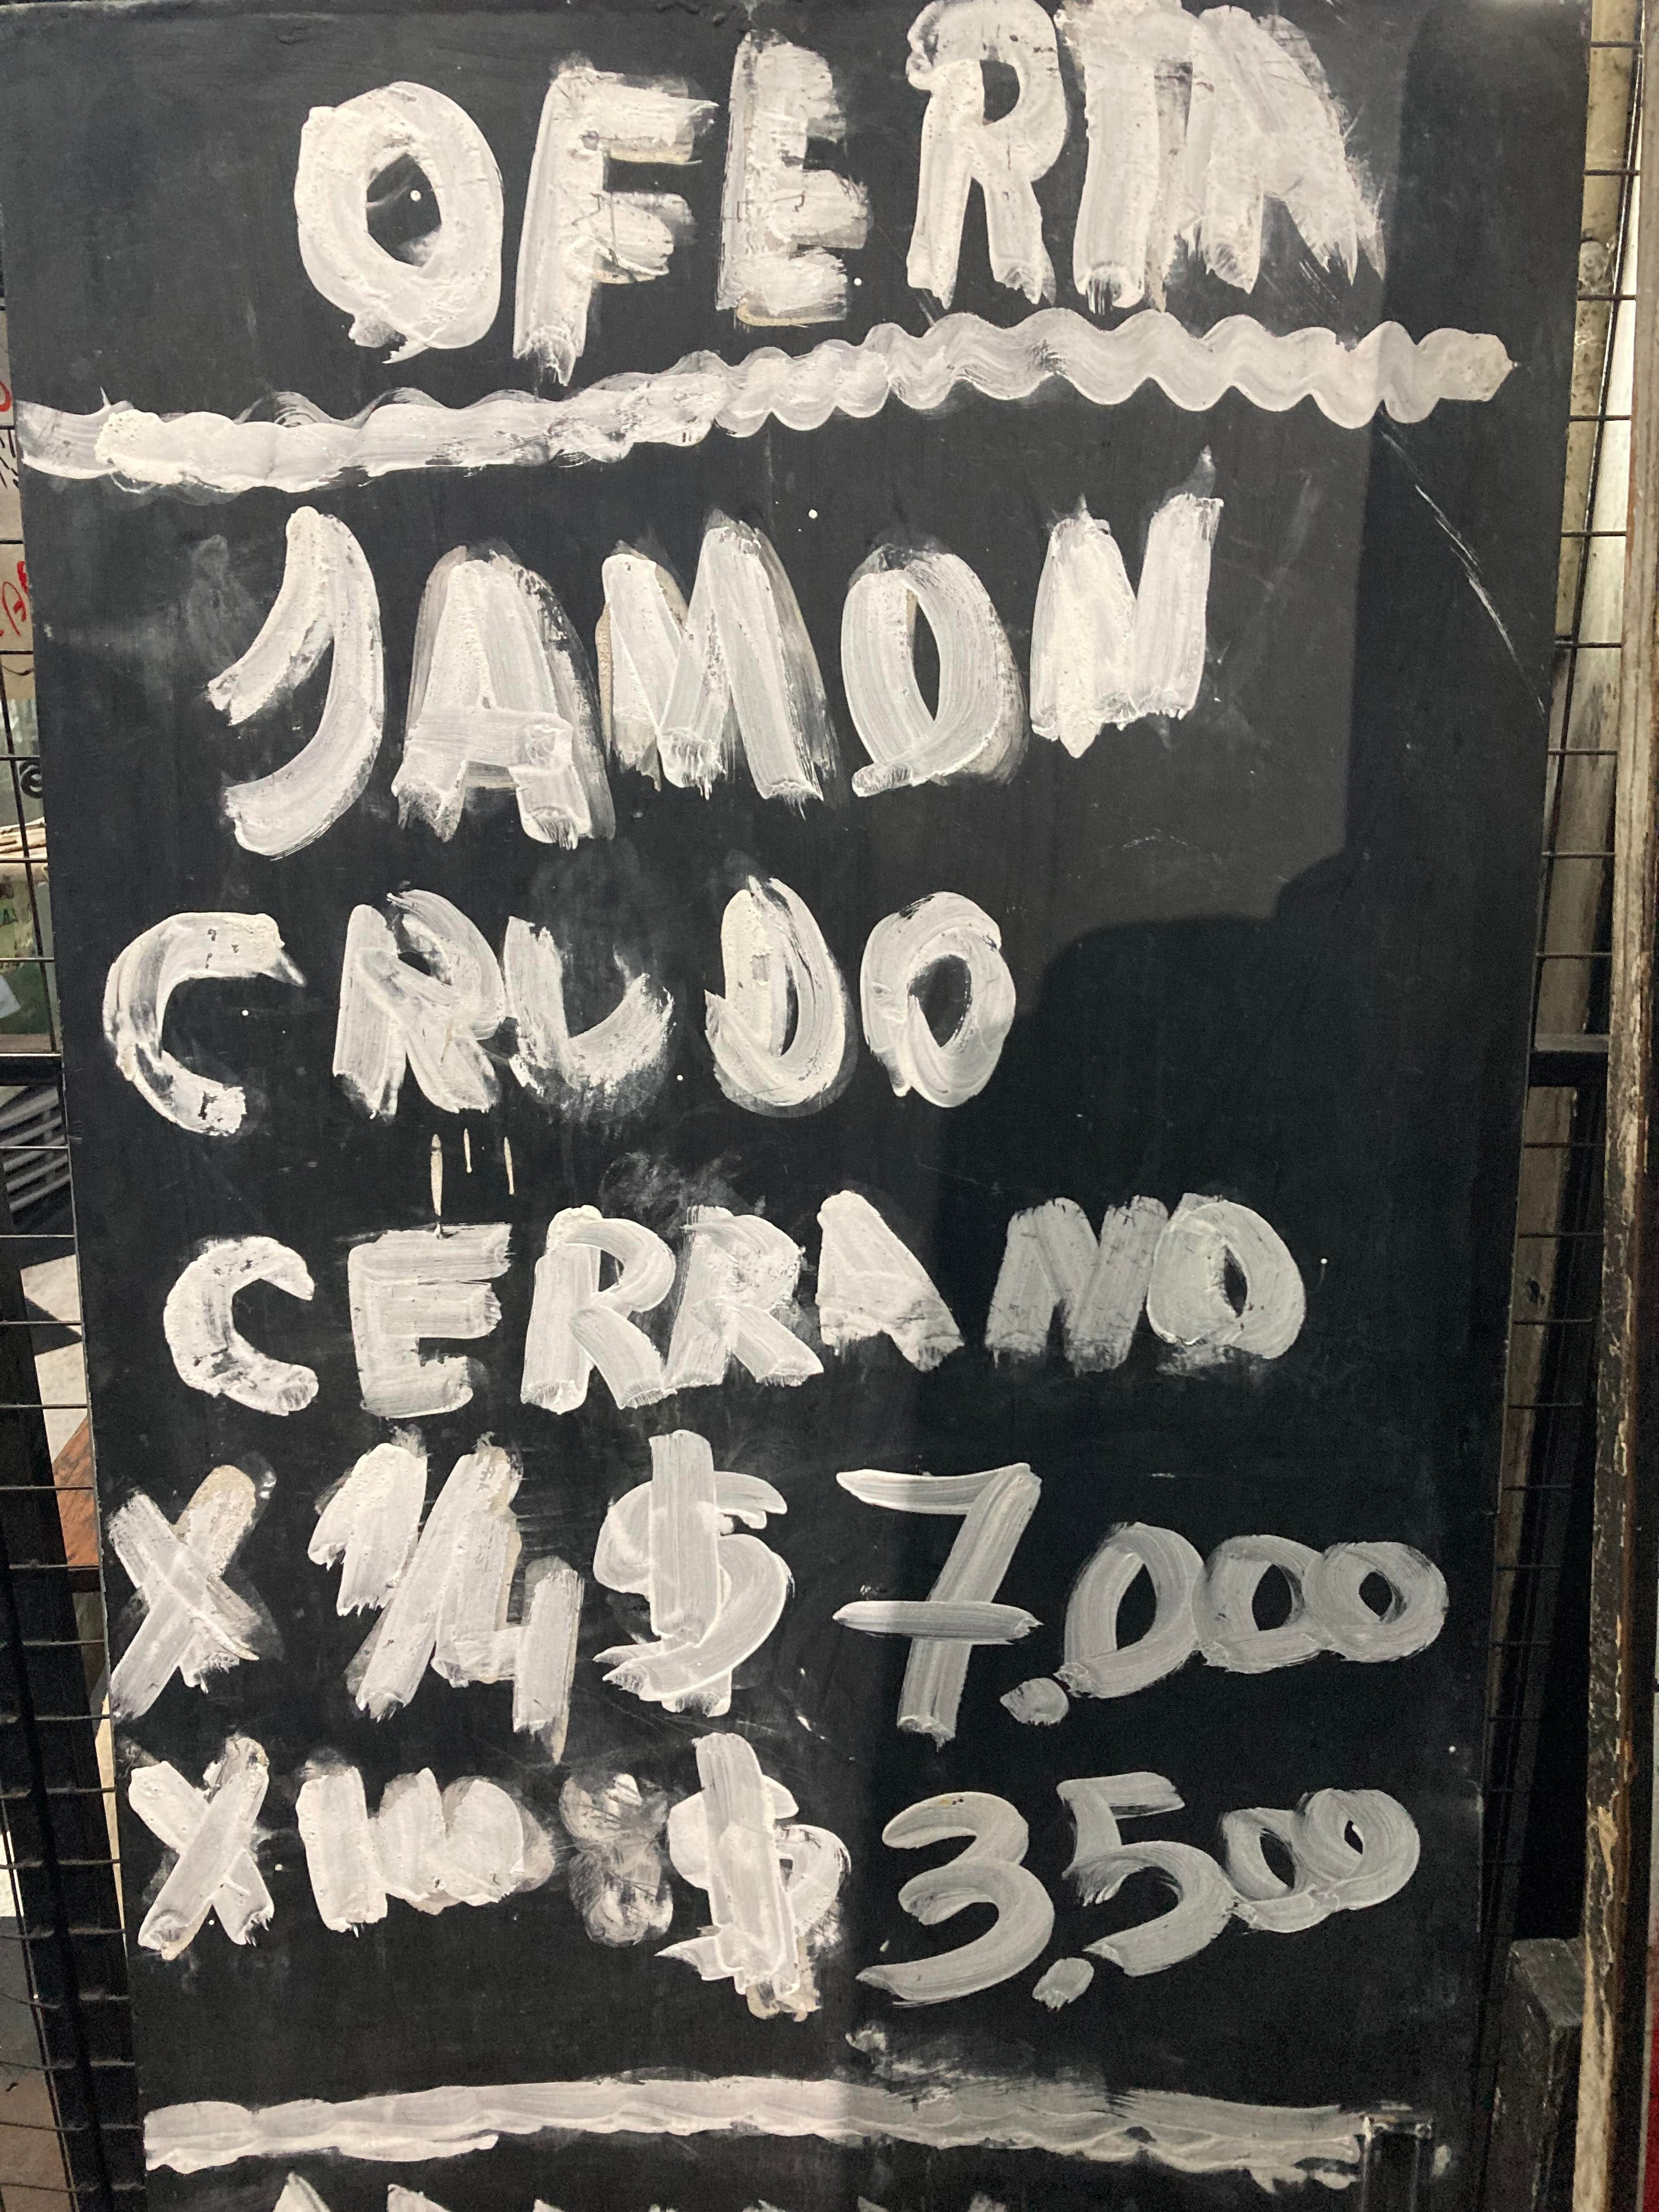 OFERTA
JAMON
CRUDO
CERRANO
X 1/4 $ 7.000
X 100 $ 3.500